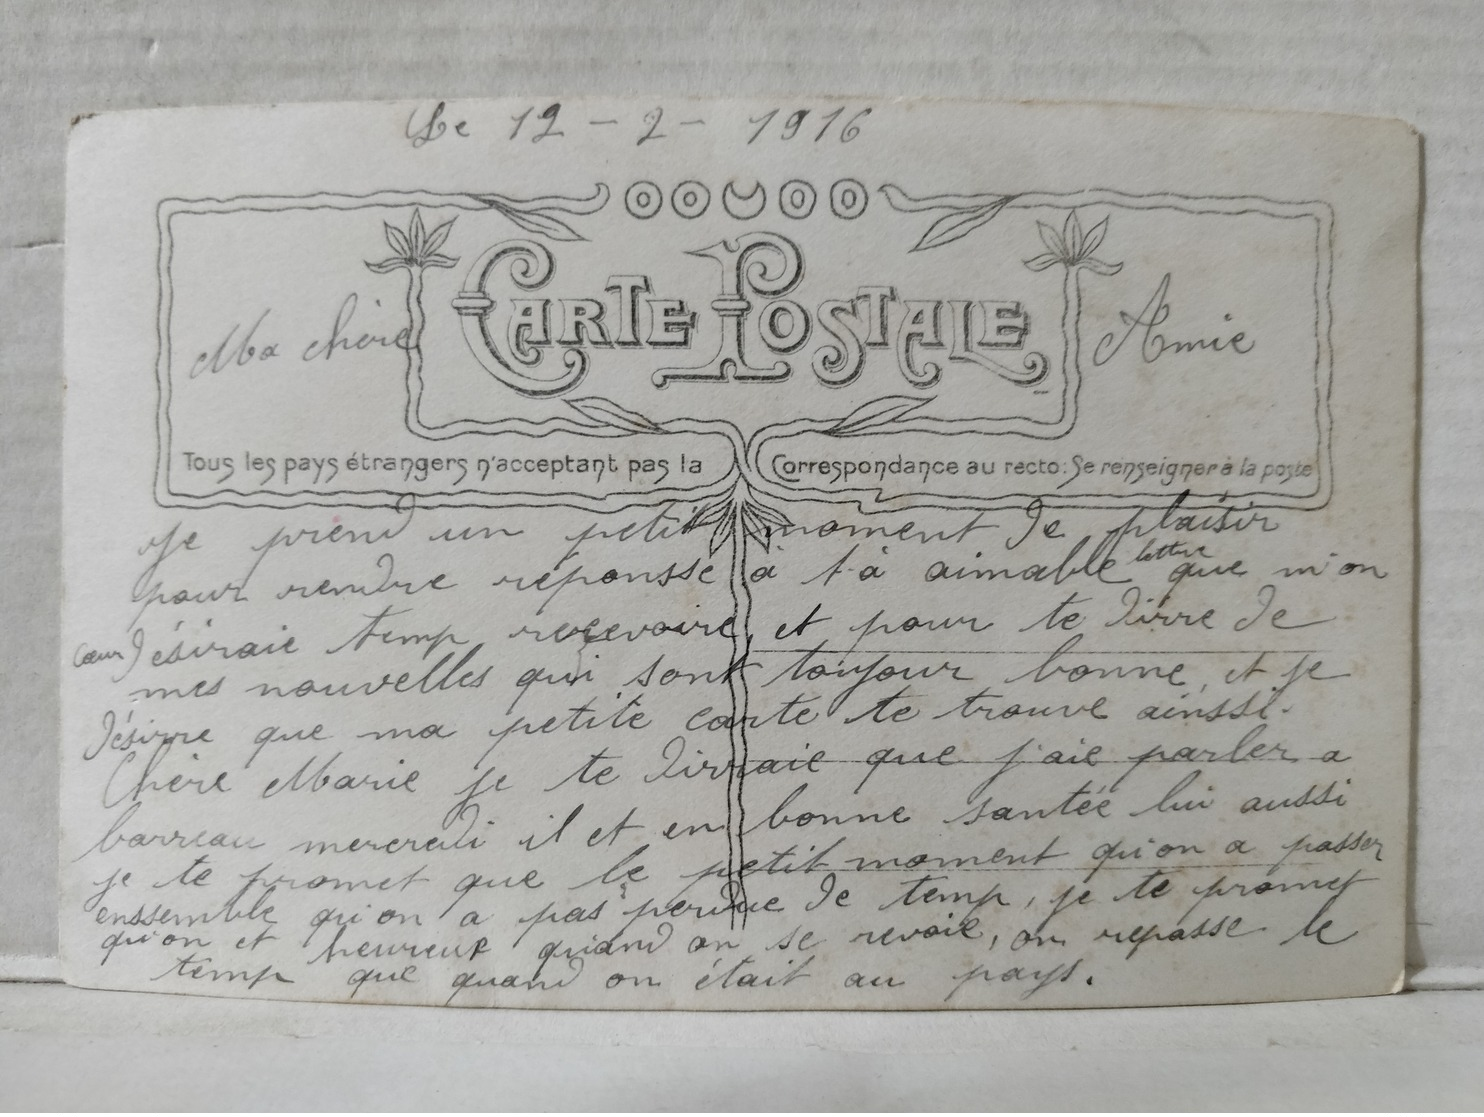 Le 12 - 2 - 1916
CARTE POSTALE
Ma chère Amie
Tous les pays étrangers n'acceptant pas la Correspondance au recto: Se renseigner à la poste
Je prend un petit moment de plaisir
pour rendre réponsse à t-à aimable lettre que m'on
cœur désiraie temp recevoire, et pour te dirre de
mes nouvelles qui sont toujour bonne, et je
désirre que ma petite carte te trouve ainssi.
Chère Marie je te dirraie que j'aie parler a
barreau mercredi il et en bonne santée lui aussi
je te promet que le petit moment qu'on a passer
enssemble qu'on a pas perdue de temp, je te promet
qu'on et heureux quand on se revoie, on repasse le
temp que quand on était au pays.